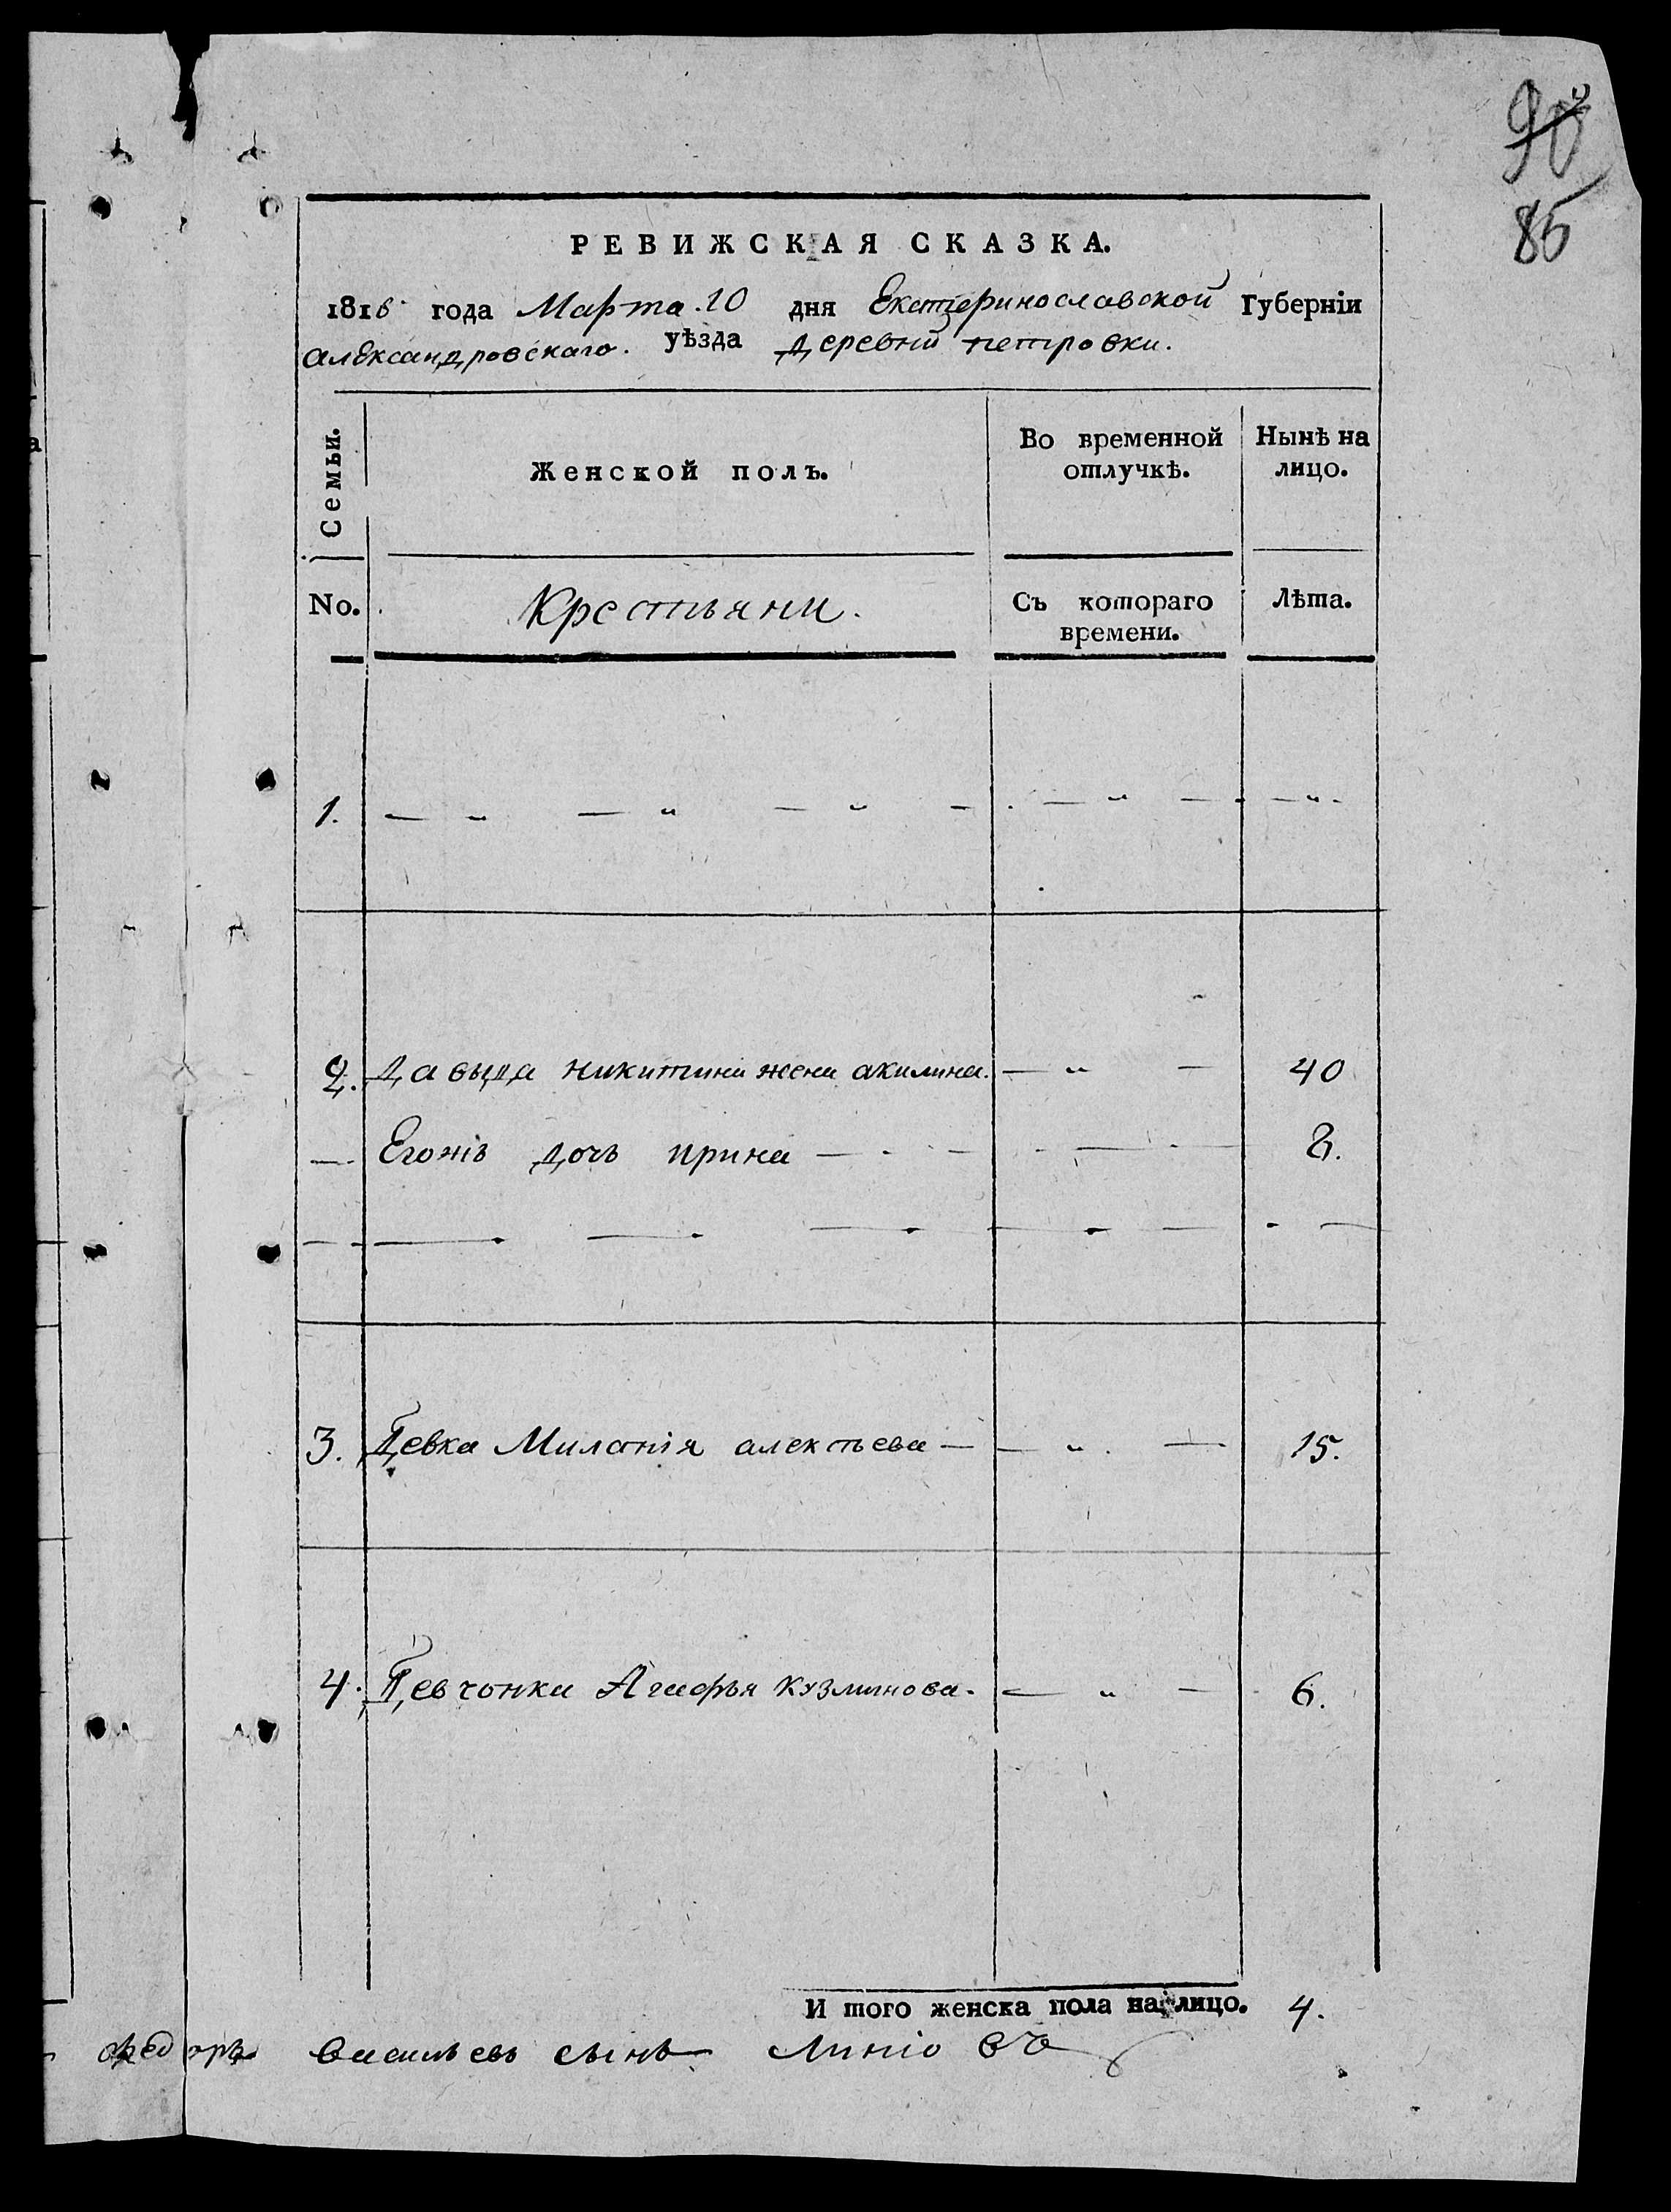 90
85
РЕВИЖСКАЯ СКАЗКА.
1816 года Марта 10 дня Екатеринославской Губерніи
александровскаго. уѣзда деревни петровки.
Семьи.
Женской полъ.
Во временной отлучкѣ.
Нынѣ на лицо.
No.
Крестьяни.
Съ котораго времени.
Лѣта.
1. — „ — „ — „ — — „ — — „ —
2. Давыда никитина жена акилина. — „ — 40
— Егожъ дочь ирина — 8.
3. Девка Миланія алекпева — — „ — 15.
4. Девчонка Агафья кузминова. — „ — 6.
И того женска пола на лицо. 4.
федоръ васильевъ сынъ